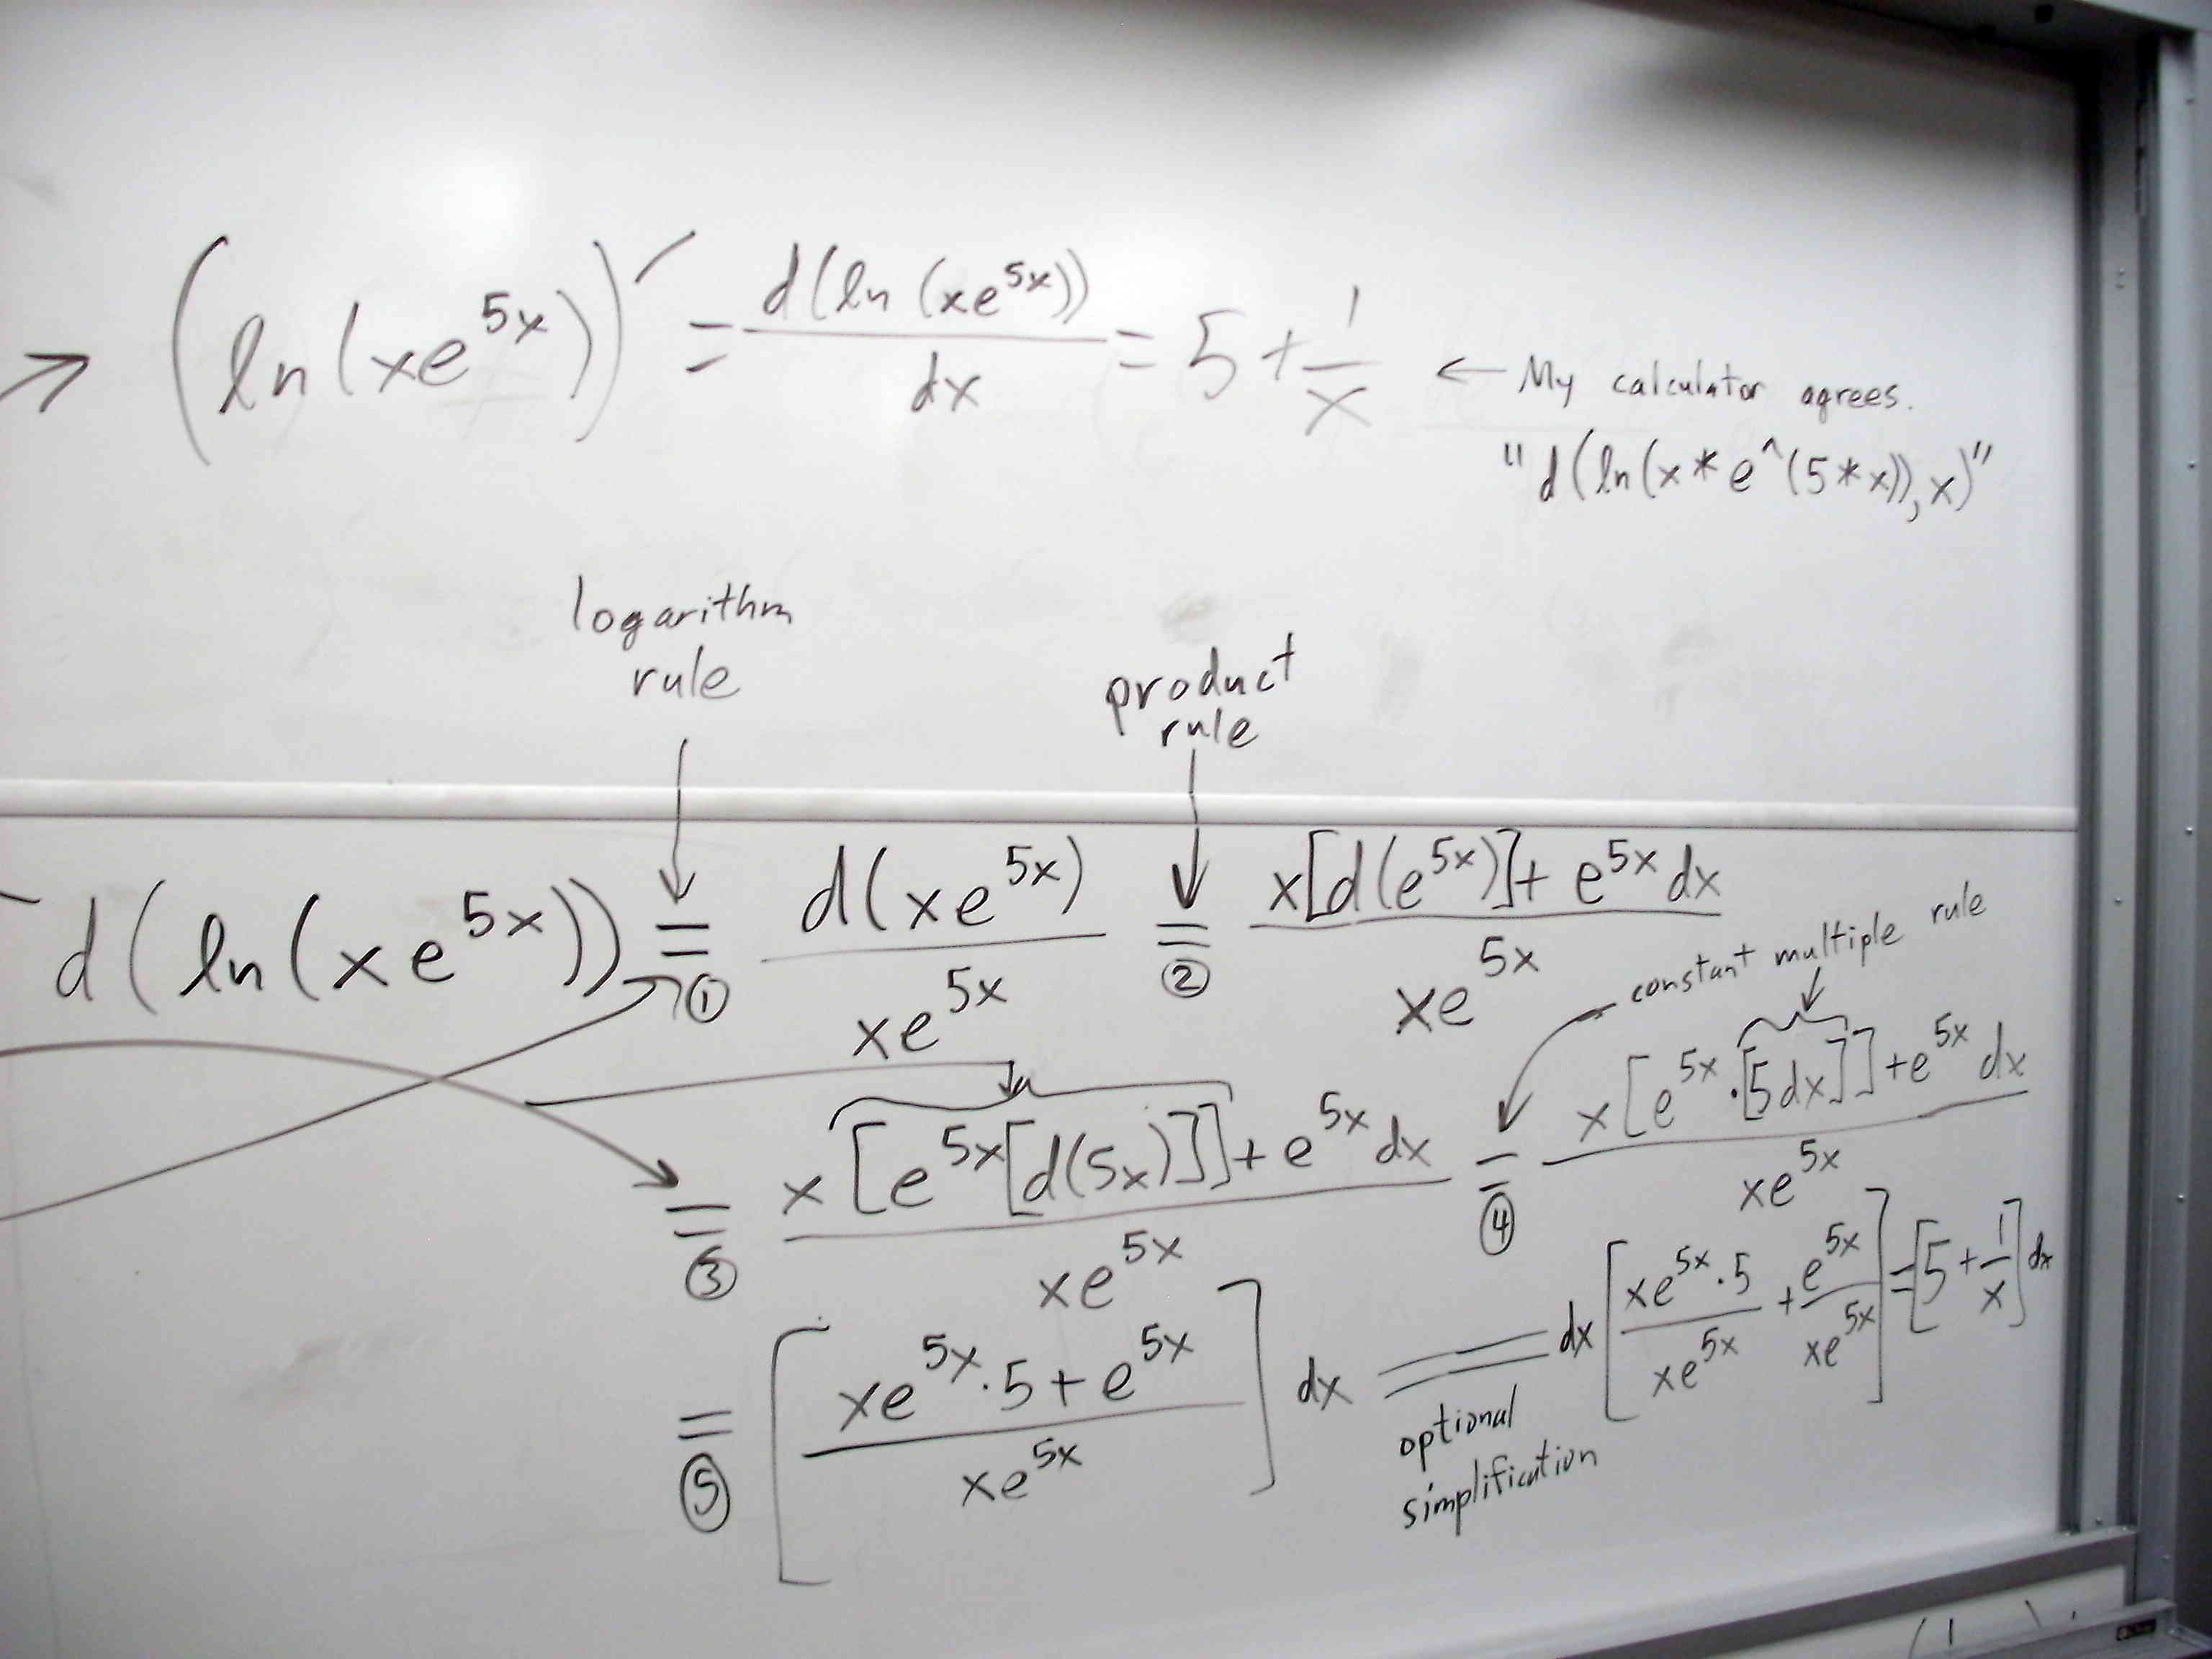 → (ln(xe^{5x}))′ = d(ln(xe^{5x}))/dx = 5 + 1/x ← My calculator agrees.
"d(ln(x*e^(5*x)),x)"
logarithm
rule
product
rule
d(ln(xe^{5x})) =① d(xe^{5x})/xe^{5x} =② (x[d(e^{5x})] + e^{5x} dx)/xe^{5x}
constant multiple rule
=③ (x[e^{5x}[d(5x)]] + e^{5x} dx)/xe^{5x} =④ (x[e^{5x}·[5dx]] + e^{5x} dx)/xe^{5x}
=⑤ [(xe^{5x}·5 + e^{5x})/xe^{5x}] dx = dx[(xe^{5x}·5)/xe^{5x} + e^{5x}/xe^{5x}] = [5 + 1/x] dx
optional
simplification